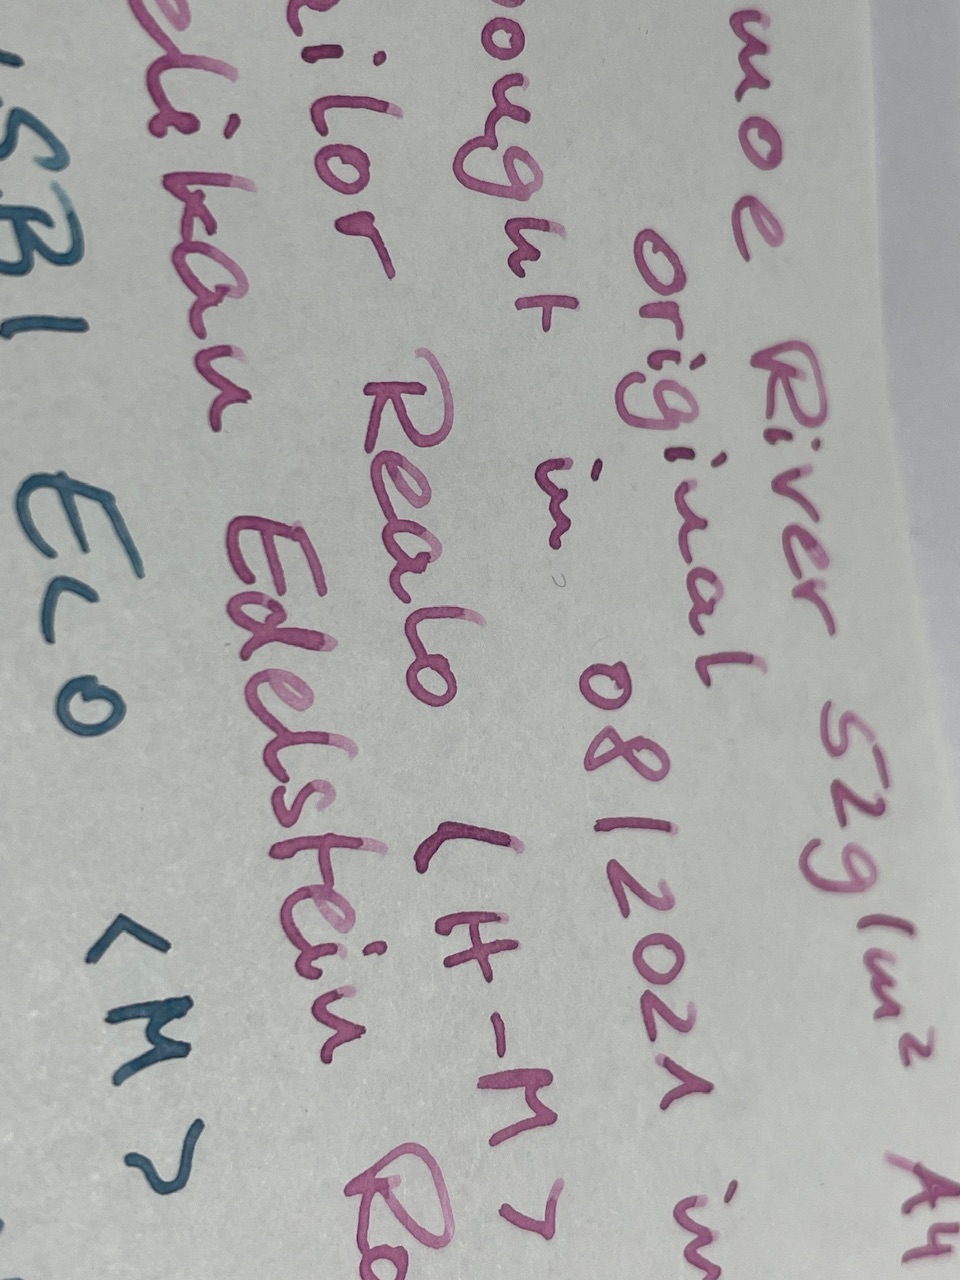 moe River 52g/m² A4
original
ought in 08/2021 in
ilor Realo <H-M>
elikan Edelstein Ro
SBI Eco <M>